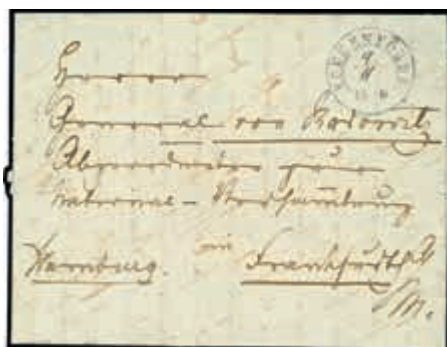 Herrn
General von Radowitz
Abgeordneter zur
National-Versammlung
in
Hamburg. Frankfurt a/M.